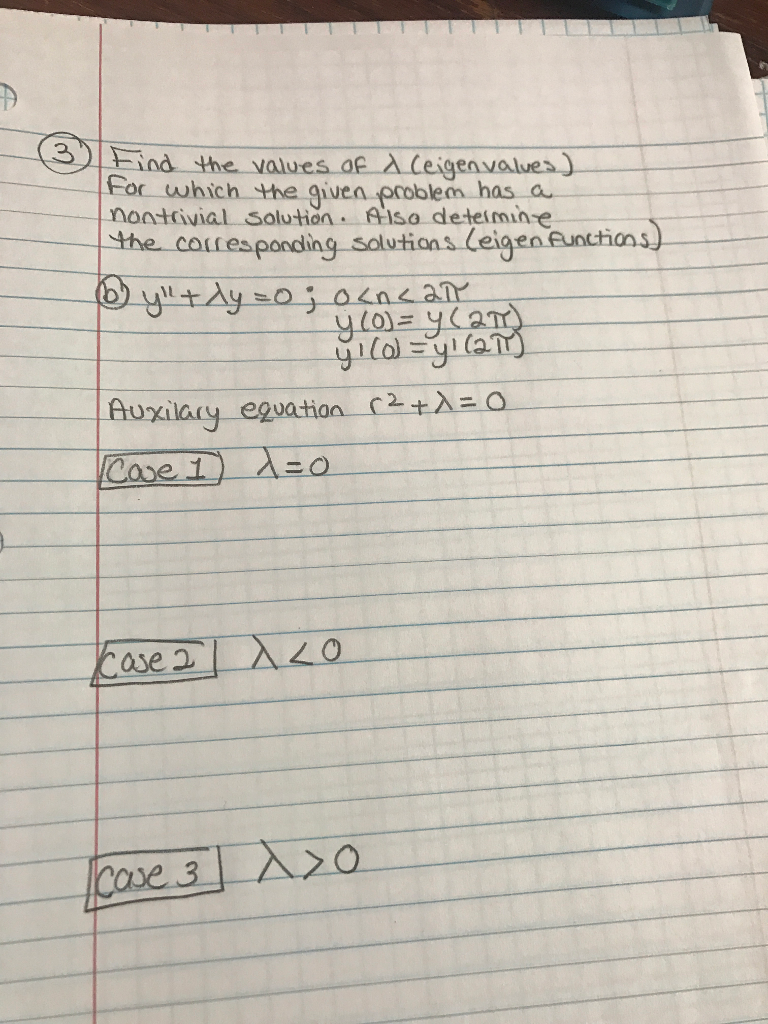 ③ Find the values of λ (eigenvalues)
for which the given problem has a
nontrivial solution. Also determine
the corresponding solutions (eigenfunctions)
ⓑ y'' + λy = 0 ; 0<n<2π
y(0) = y(2π)
y'(0) = y'(2π)
Auxilary equation r² + λ = 0
Case 1 λ = 0
Case 2 λ < 0
Case 3 λ > 0